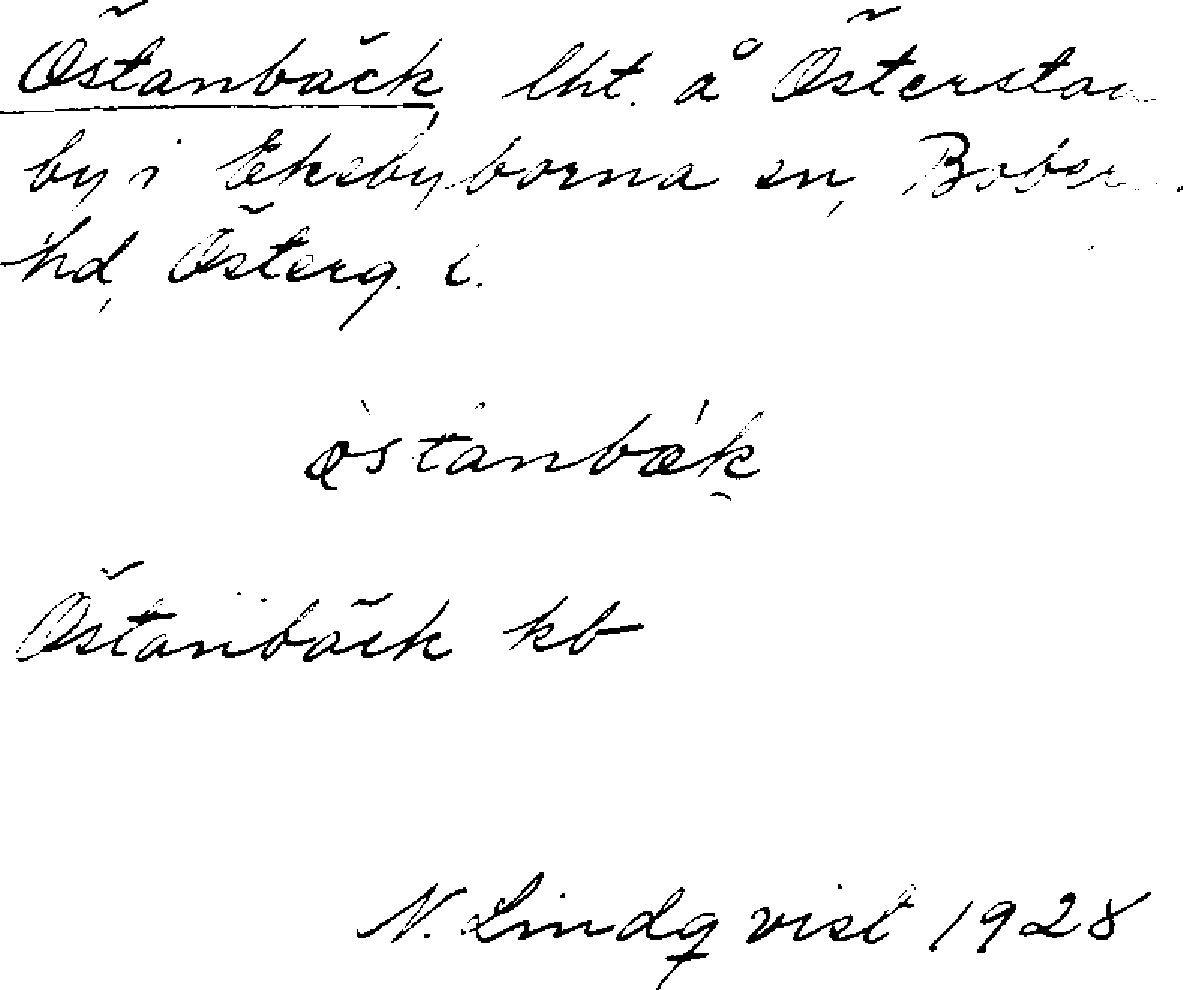 Östanbäck, lht. å Österstad
by i Ekebyborna sn, Bobergs
hd, Österg. l.
östanbæk
Östanbäck kb
N. Lindqvist 1928